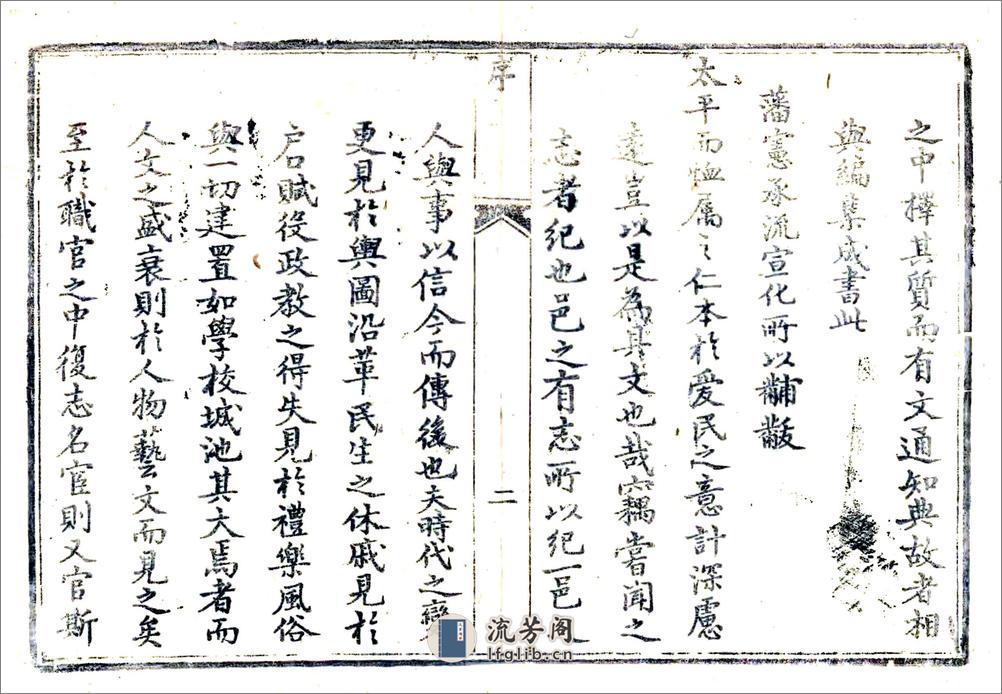 之中擇其質而有文通知典故者相
與編集成書此
藩憲承流宣化所以黼黻
太平而恤屬之仁本於愛民之意計深慮
遠豈以是為具文也哉竊嘗聞之
志者紀也邑之有志所以紀一邑
序
二
人與事以信今而傳後也夫時代之變
更見於輿圖沿革民生之休戚見於
戶口賦役政教之得失見於禮樂風俗
與一切建置如學校城池其大焉者而
人文之盛衰則於人物藝文而見之矣
至於職官之中復志名宦則又官斯
流芳阁
lfglib.cn